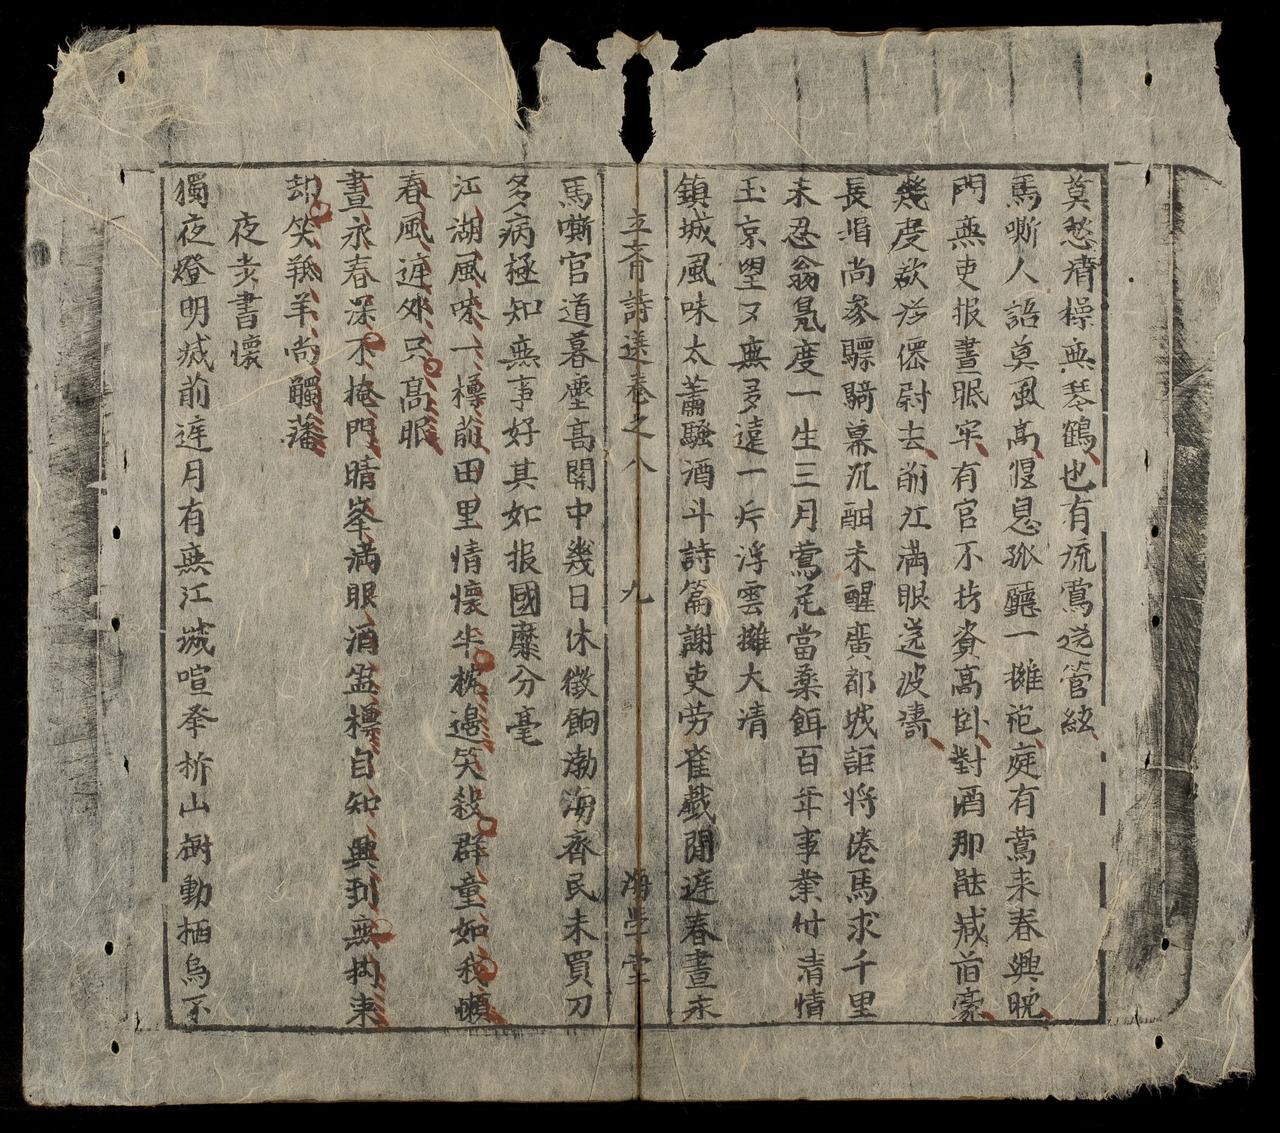 莫愁清操無琴鶴也有流鶯送管絃
馬嘶人語莫風高偃息孤廳一擁袍庭有鶯来春興晩
門無吏报晝眠牢有官不

高卧對酒那能減舊豪
幾度欲
去前江滿眼送波濤
長揖尚參驃騎幕沉酣未醒廣都城詎将倦馬求千里
未忍翁鳧度一生三月鶯花當藥餌百年事業付清情
玉京望又無多遠一片浮雲擁大清
鎮城風味太蕭騷酒斗詩篇謝吏劳雀戱閒遅春晝永
立斎詩選巻之八 九 海生堂
馬嘶官道暮塵高関中幾日休徵餉渤海齊民未買刀
多病極知無事好其如报國靡分毫
江湖風味一樽前田里情懷半枕邊笑殺群童如我懶
春風遅外只高眠
晝永春深不掩門晴峯滿眼酒盈樽自知興到無拘束
却笑羝羊尚觸藩
夜坐書懷
獨夜燈明滅前庭月有無江城喧夆柝山樹動栖烏不